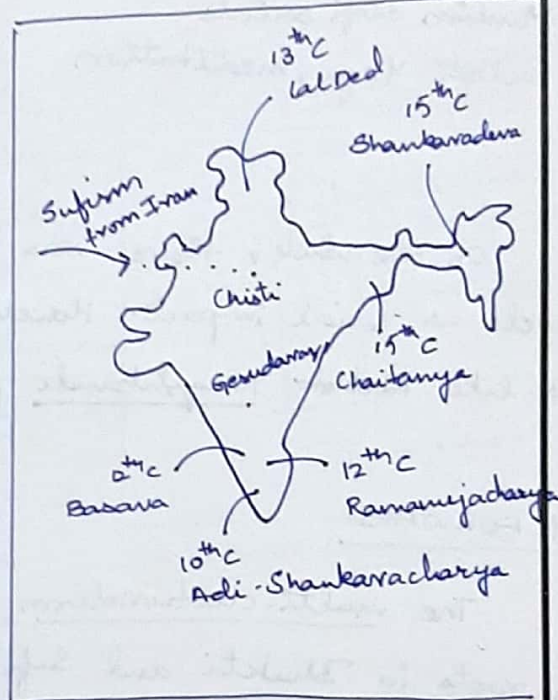 13th C
Lal Ded
15th C
Shankaradeva
Sufism
from Iran
Chisti
Gesudaraz
15th C
Chaitanya
12th C
Basava
12th C
Ramanujacharya
10th C
Adi-Shankaracharya